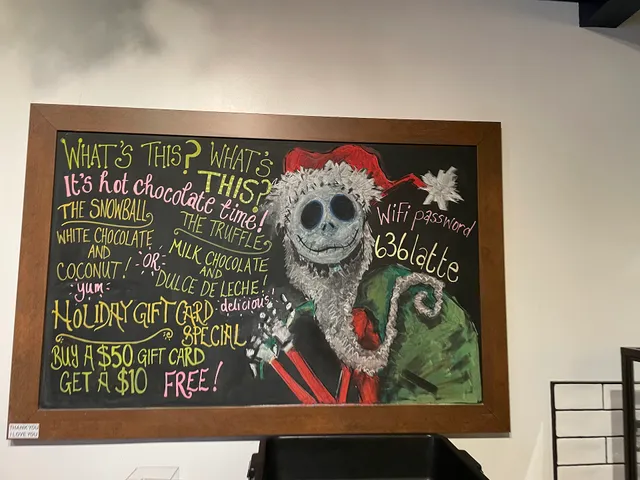 WHAT'S THIS? WHAT'S
THIS?
It's hot chocolate time!
THE SNOWBALL
WHITE CHOCOLATE
AND
COCONUT!
yum
OR
THE TRUFFLE
MILK CHOCOLATE
AND
DULCE DE LECHE!
delicious
HOLIDAY GIFT CARD
SPECIAL
BUY A $50 GIFT CARD
GET A $10 FREE!
WiFi password
636latte
THANK YOU
I LOVE YOU